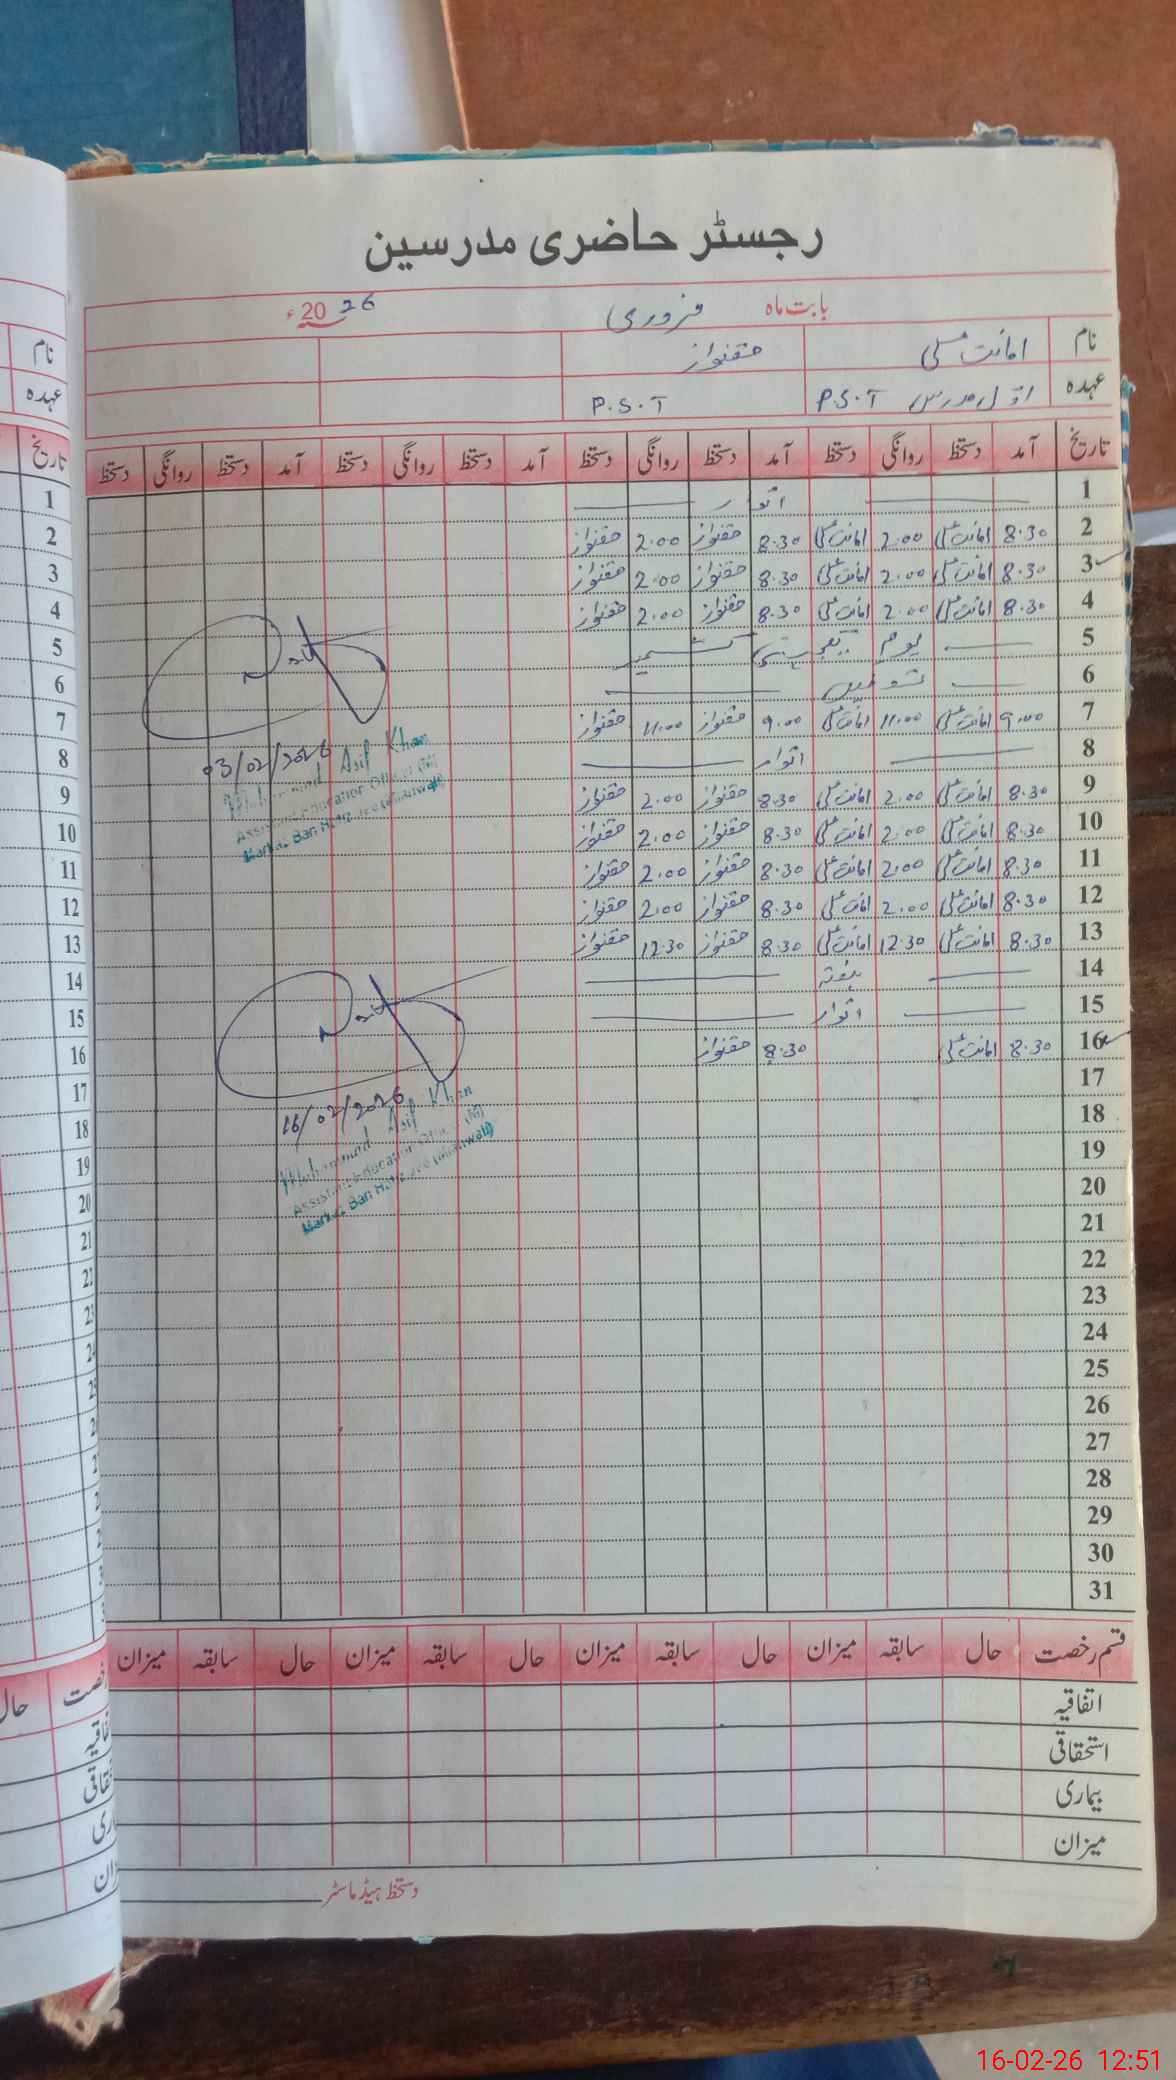 رجسٹر حاضری مدرسین
بابت ماہ فروری 2026ء
نام امانت علی حقنواز
عہدہ اول مدرس P.S.T P.S.T
تاریخ آمد دستخط روانگی دستخط آمد دستخط روانگی دستخط آمد دستخط روانگی دستخط آمد دستخط روانگی دستخط
1 اتوار
2 8:30 امانت علی 2:00 امانت علی 8:30 حقنواز 2:00 حقنواز
3 8:30 امانت علی 2:00 امانت علی 8:30 حقنواز 2:00 حقنواز
4 8:30 امانت علی 2:00 امانت علی 8:30 حقنواز 2:00 حقنواز
5 یوم یکجہتی کشمیر
6
7 9:00 امانت علی 11:00 امانت علی 9:00 حقنواز 11:00 حقنواز
8 اتوار
9 8:30 امانت علی 2:00 امانت علی 8:30 حقنواز 2:00 حقنواز
10 8:30 امانت علی 2:00 امانت علی 8:30 حقنواز 2:00 حقنواز
11 8:30 امانت علی 2:00 امانت علی 8:30 حقنواز 2:00 حقنواز
12 8:30 امانت علی 2:00 امانت علی 8:30 حقنواز 2:00 حقنواز
13 8:30 امانت علی 12:30 امانت علی 8:30 حقنواز 12:30 حقنواز
14 ہفتہ
15 اتوار
16 8:30 امانت علی 8:30 حقنواز
17
18
19
20
21
22
23
24
25
26
27
28
29
30
31
03/02/2026
Muhammad Asif Khan
Assistant Education Officer (M)
Markaz Ban Hafiz Jee (Mianwali)
16/02/2026
Muhammad Asif Khan
Assistant Education Officer (M)
Markaz Ban Hafiz Jee (Mianwali)
قسم رخصت حال سابقہ میزان حال سابقہ میزان حال سابقہ میزان حال سابقہ میزان
اتفاقیہ
استحقاقی
بیماری
میزان
دستخط ہیڈ ماسٹر
نام
عہدہ
تاریخ
1
2
3
4
5
6
7
8
9
10
11
12
13
14
15
16
17
18
19
20
21
حال
16-02-26 12:51